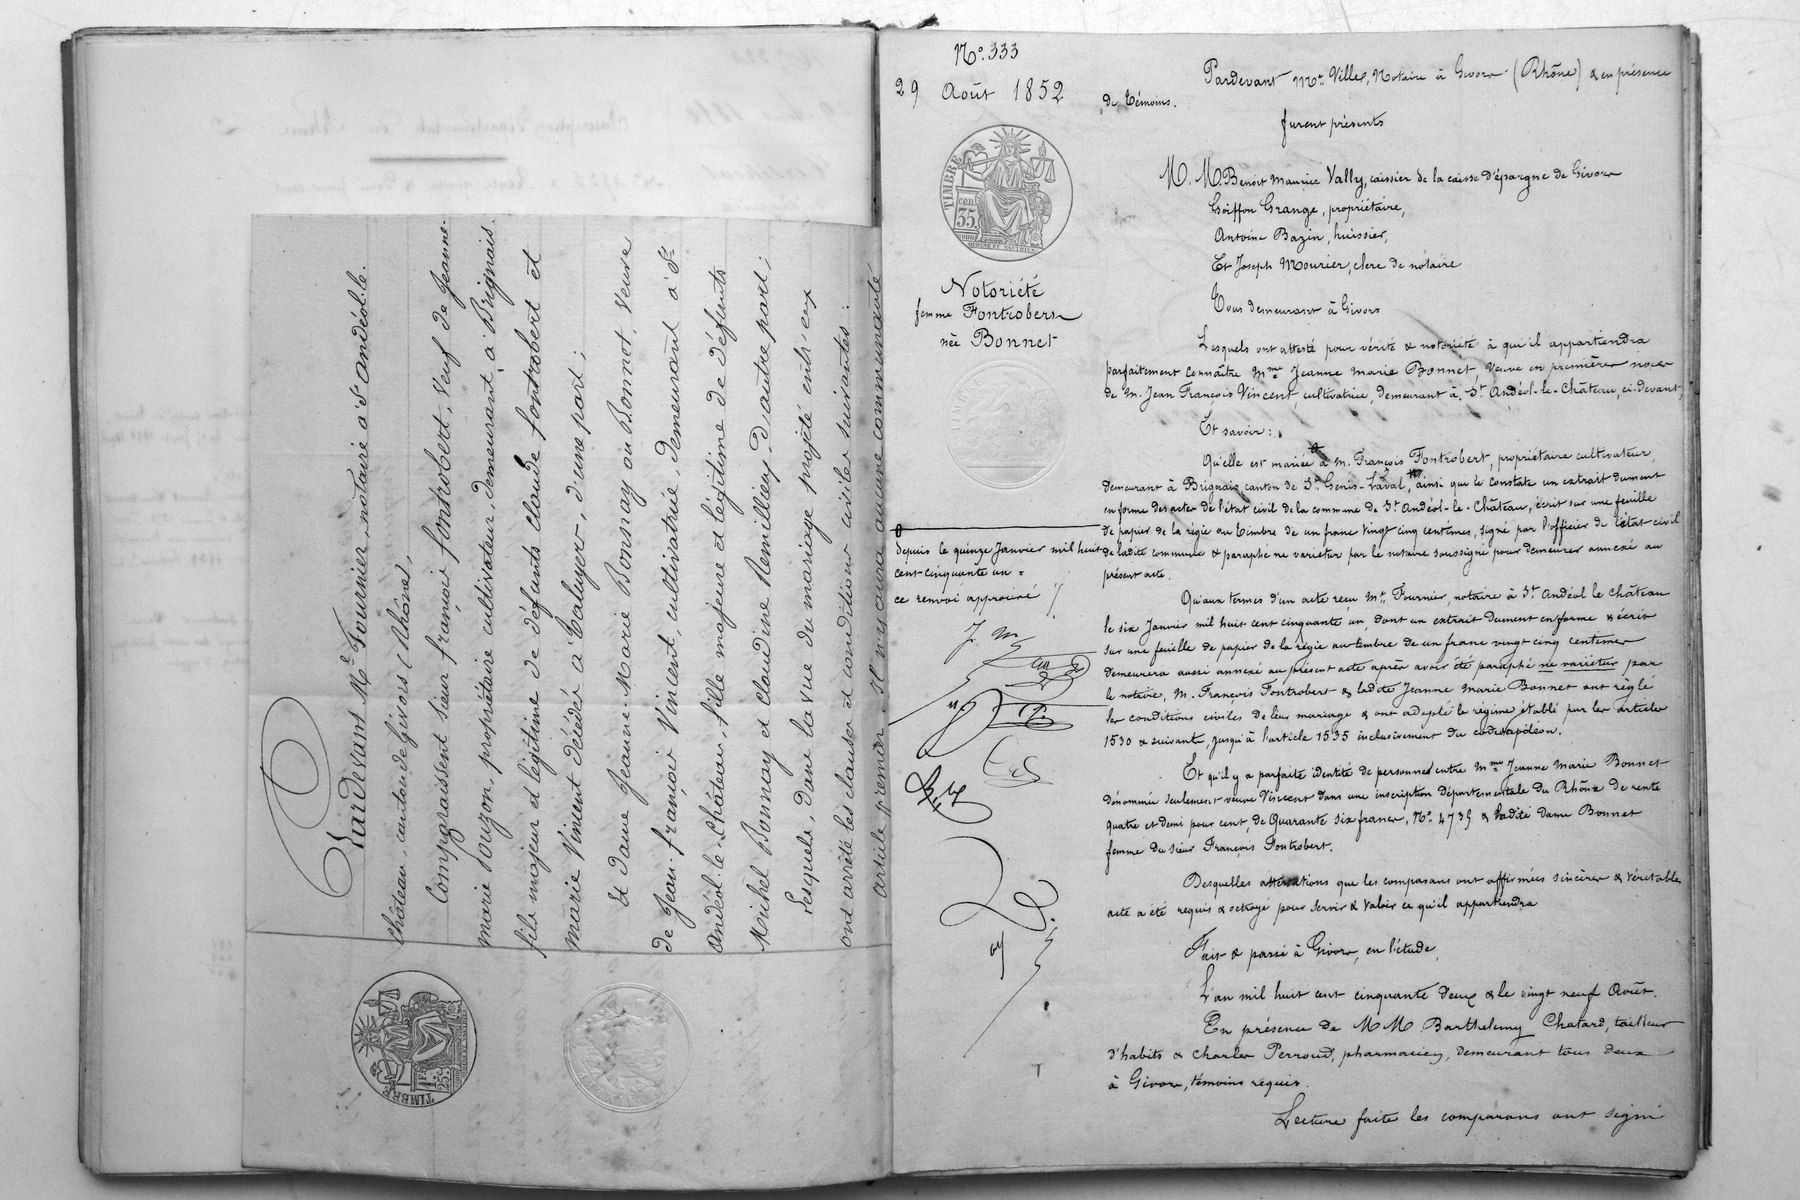 Pardevant Me Fournier, notaire à St Andéol-le-
Château canton de Givors (Rhône),
Comparaissent Sieur françois fontrobert, veuf de Jeanne-
marie Souzon, propriétaire cultivateur, demeurant à Brignais
fils majeur et légitime de défunts claude fontrobert et
marie Vincent décédés à Taluyers, d'une part;
Et dame Jeanne-Marie Bonnay ou Bonnet, Veuve
de Jean-françois Vincent cultivatrice, demeurant à St
Andéol-le-Château, fille majeure et légitime de défunts
Michel Bonnay et claudine Remillieux, d'autre part;
Lesquels, dans la vue du mariage projeté entr'eux
ont arrêté les clauses et conditions civiles suivantes:
article premier il n'y aura aucune communauté
TIMBRE
1 FR 25 C.
No. 333
29 Août 1852
TIMBRE
cen. 35
Notoriété
femme Fontrobert
née Bonnet
depuis le quinze Janvier mil huit
cent-cinquante un =
ce renvoi approuvé
J. M
Pardevant Me Ville, Notaire à Givors (Rhône) & en présence
de témoins.
furent présents
M. M. Benoit Maurice Vally, caissier de la caisse d'épargne de Givors
Goiffon Grange, propriétaire,
Antoine Bazin, huissier,
Et Joseph Mourier, clerc de notaire
Tous demeurant à Givors
Lesquels ont attesté pour vérité & notoriété à qui il appartiendra
parfaitement connaître Mme Jeanne Marie Bonnet Veuve en premières noces
de M. Jean François Vincent, cultivatrice, demeurant à St Andéol-le-Château, ci-devant,
Et savoir:
Qu'elle est mariée à M. François Fontrobert, propriétaire cultivateur,
demeurant à Brignais canton de St Genis-Laval, ainsi que le constate un extrait dument
en forme des actes de l'état civil de la commune de St Andéol-le-Château, écrit sur une feuille
de papier de la régie au timbre de un franc vingt cinq centimes, signé par l'officier de l'état civil
de ladite commune & paraphé ne varietur par le notaire soussigné pour demeurer annexé au
présent acte.
Qu'aux termes d'un acte reçu Me Fournier, notaire à St Andéol le Château
le six Janvier mil huit cent cinquante un, dont un extrait dument en forme & écrit
sur une feuille de papier de la régie au timbre de un franc vingt cinq centimes
demeurera aussi annexé au présent acte après avoir été paraphé ne varietur par
le notaire, M. François Fontrobert & ladite Jeanne Marie Bonnet ont réglé
les conditions civiles de leur mariage & ont adopté le régime établi par les articles
1530 & suivants, jusqu'à l'article 1535 inclusivement du code Napoléon.
Et qu'il y a parfaite identité de personnes entre Mme Jeanne Marie Bonnet
dénommée seulement veuve Vincent dans une inscription départementale du Rhône de rente
quatre et demi pour cent, de Quarante six francs, No. 4735 & ladite dame Bonnet
femme du sieur François Fontrobert.
Desquelles attestations que les comparans ont affirmées sincères & véritables
acte a été requis & octroyé pour servir & valoir ce qu'il appartiendra
Fait & passé à Givors, en l'étude,
L'an mil huit cent cinquante deux & le vingt neuf Août.
En présence de M M. Barthelemy Chatard, tailleur
d'habits & Charles Perroud, pharmacien, demeurant tous deux
à Givors, témoins requis.
Lecture faite les comparans ont signé